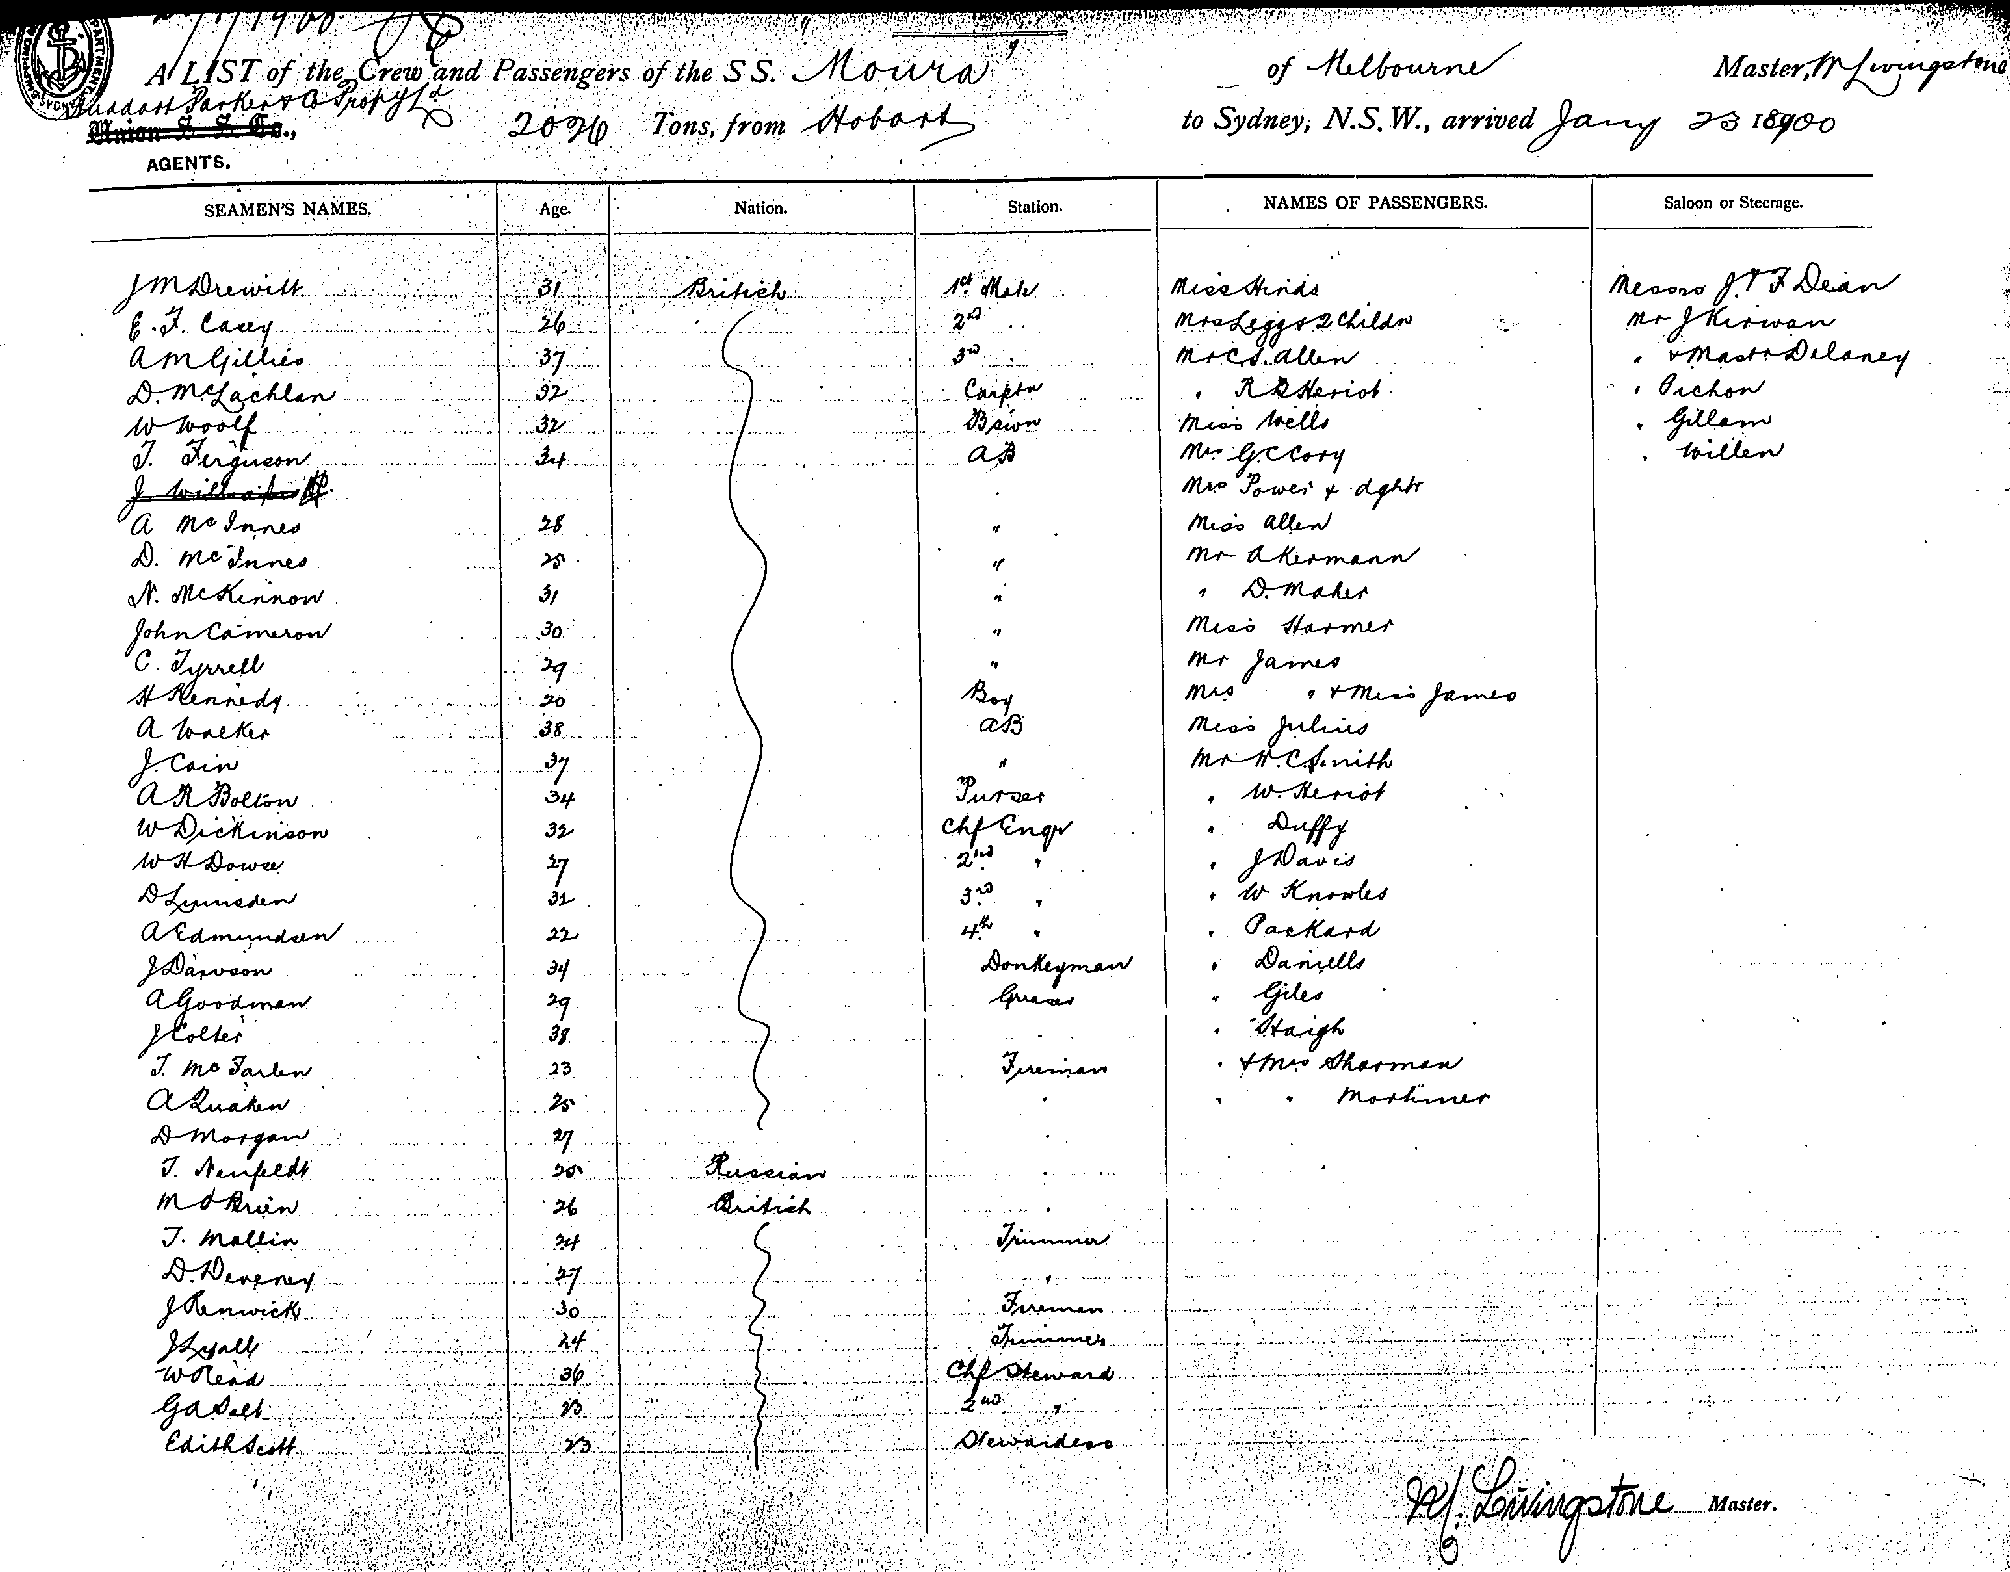 A LIST of the Crew and Passengers of the S S. Moura of Melbourne Master, W Livingstone
Huddart Parker & Co Propy Ld
Union S. S. Co.,
AGENTS.
2026 Tons, from Hobart to Sydney, N.S.W., arrived Jany 23 1900
SEAMEN'S NAMES. Age. Nation. Station. NAMES OF PASSENGERS. Saloon or Steerage.
J M Drewitt 31 British 1st Mate Miss Hinds Messrs J. & F Dean
E. F. Casey 26 2nd Mrs Legg & 2 Childn Mr J Kirwan
A M Gillies 37 3rd Mr C S. Allen " & Mastr Delaney
D. McLachlan 32 Carptr " R R Heriot " Pichon
W Woolf 32 Bswn Miss Wells " Gillam
T. Ferguson 34 AB Mr G C Cory " Willen
Mrs Power & dghtr
A McInnes 28 " Miss Allen
D. McInnes 25 " Mr Akermann
N. McKinnon 31 " " D. Maher
John Cameron 30 " Miss Harmer
C. Tyrrell 29 " Mr James
H Kennedy 20 Boy Mrs " & Miss James
A Walker 38 AB Miss Julius
J. Cain 37 " Mr W. C. Smith
A R Bolton 34 Purser " W. Heriot
W Dickinson 32 Chf Engr " Duffy
W H Dowse 27 2nd " " J Davis
D Lumsden 31 3rd " " W Knowles
A Edmundsen 22 4th " " Packard
J Dawson 34 Donkeyman " Daniells
A Goodman 29 Greaser " Giles
J Colter 38 " " Haigh
T. McFarlen 23 Fireman " & Mrs Sharman
A Quaken 25 " " " Mortimer
D Morgan 27 "
T. Neufeldt 25 Russian "
M O'Brien 26 British "
T. Mallin 24 Trimmer
D. Deveney 27 "
J Renwick 30 Fireman
J Lyall 24 Trimmer
W Read 36 Chf Steward
G A Salt 23 2nd "
Edith Scott 23 Stewardess
W. Livingstone Master.